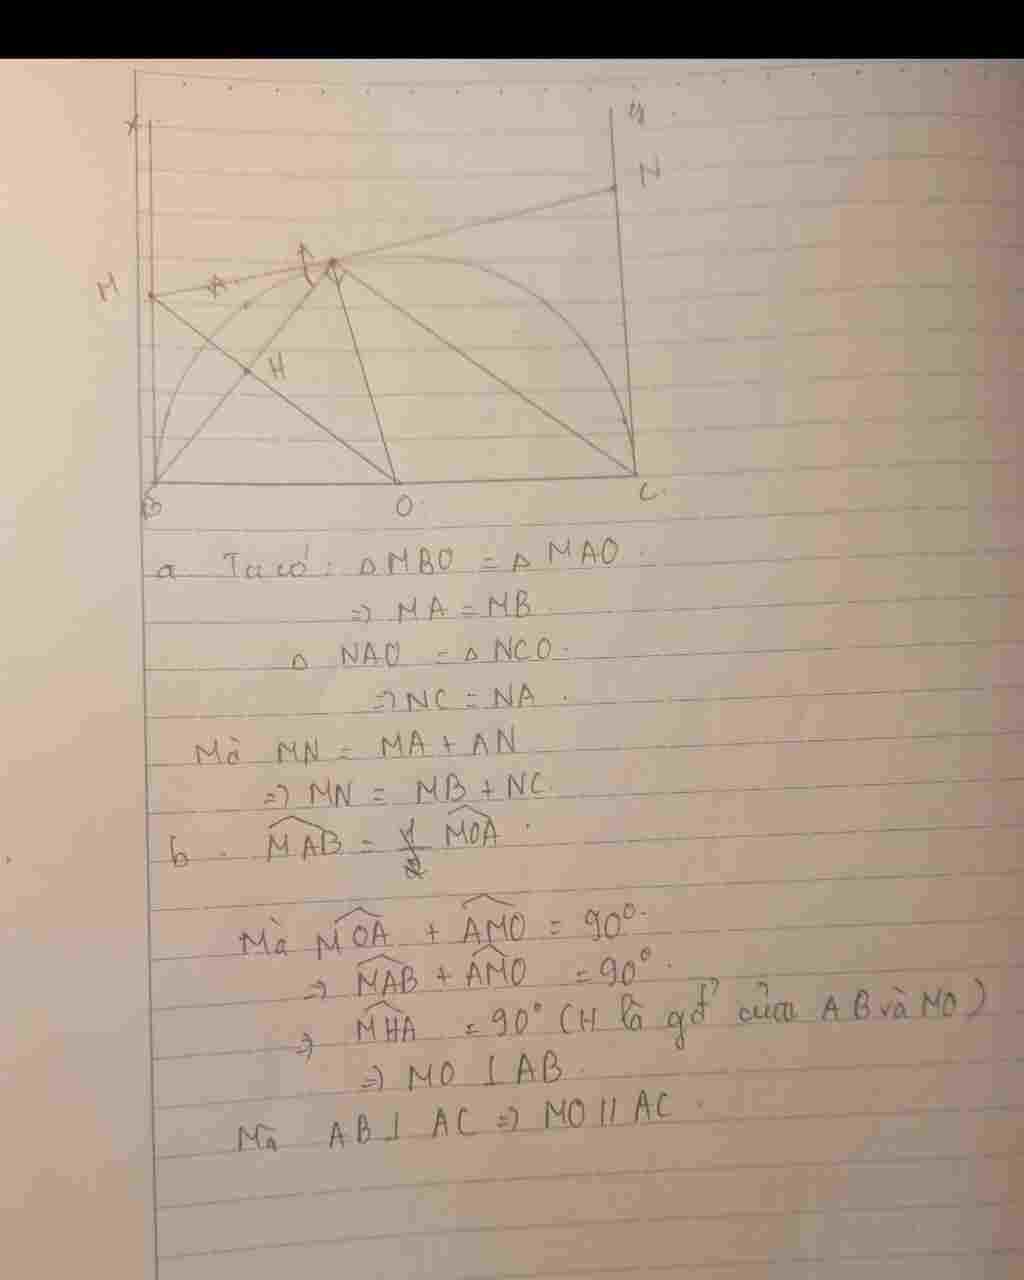 x
y
N
M
A
H
B
O
C
a Ta có: △MBO = △MAO.
=> MA = MB.
△ NAO = △NCO.
=> NC = NA.
Mà MN = MA + AN
=> MN = MB + NC.
b. MAB = MOA.
Mà MOA + AMO = 90°.
=> MAB + AMO = 90°.
=> MHA = 90° (H là gđ của AB và MO)
=> MO ⊥ AB.
Mà AB ⊥ AC => MO // AC.